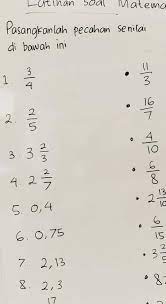 Latihan Soal Matema
Pasangkanlah pecahan senilai
di bawah ini
1 3/4
• 11/3
2. 2/5
• 16/7
3 3 2/3
• 4/10
4. 2 2/7
• 6/8
5. 0,4
• 2 13/10
6. 0,75
• 6/15
7 2,13
• 3 2/
8. 2,3
• 8
17